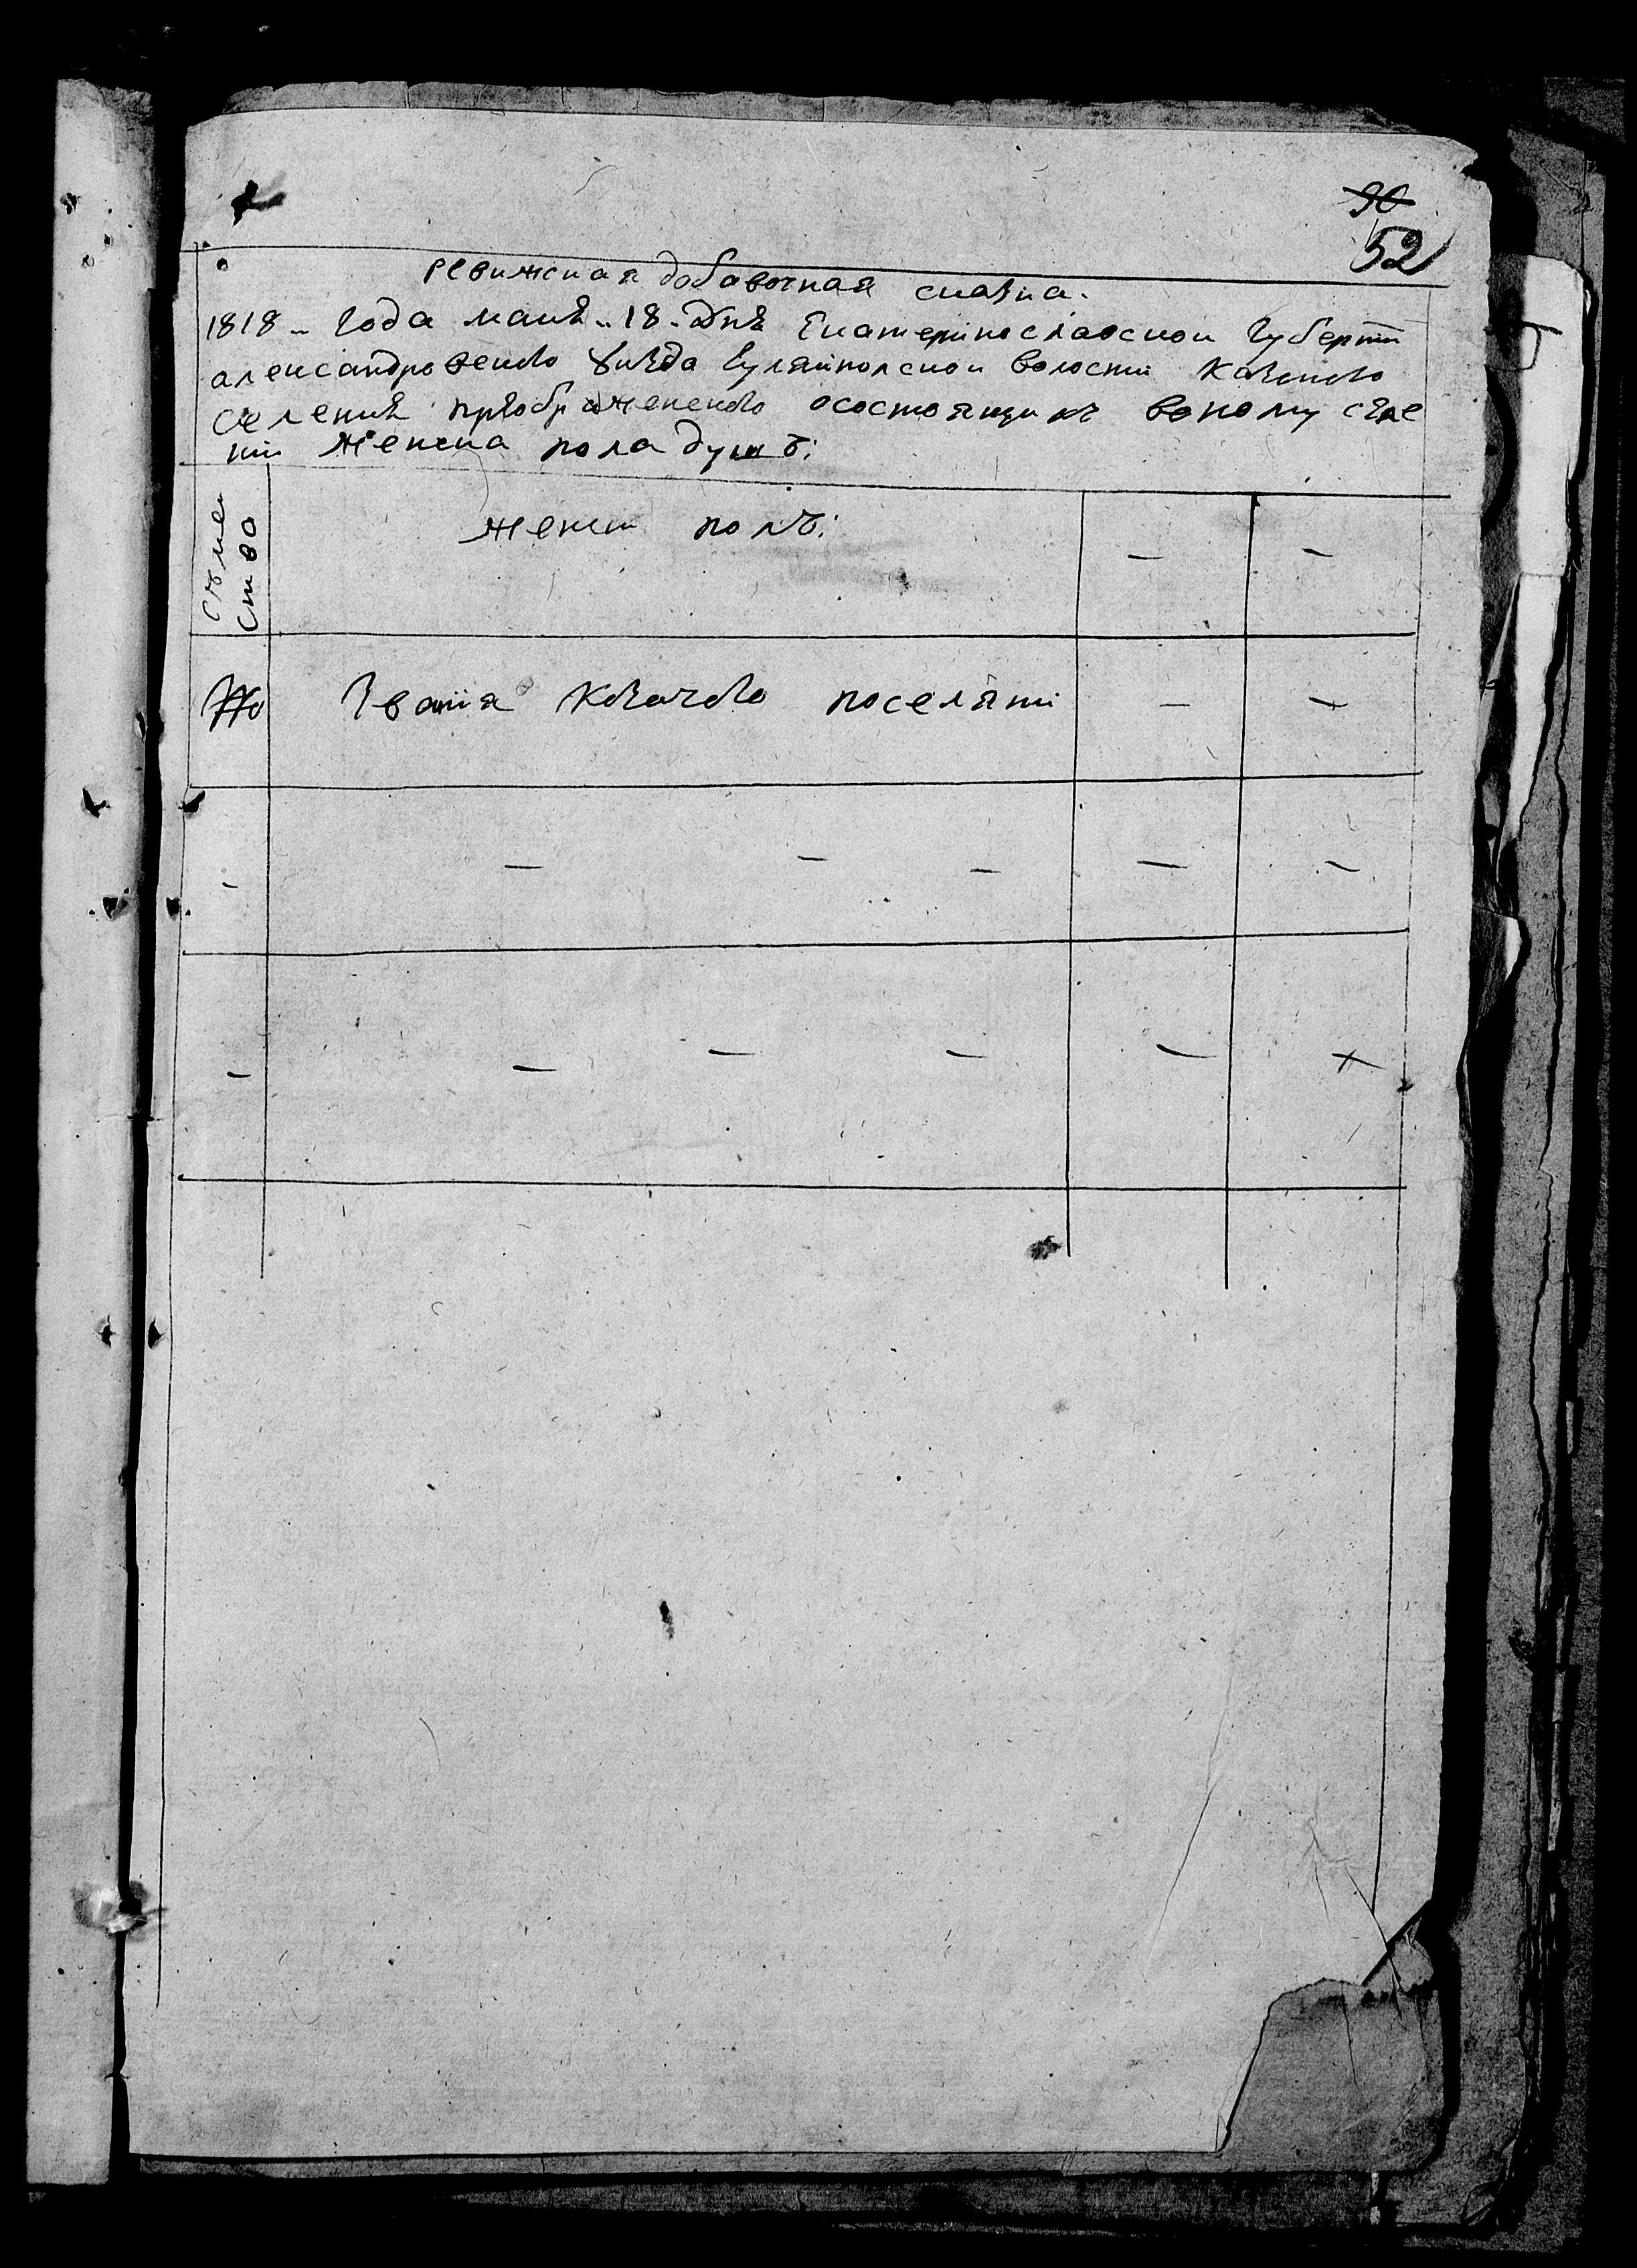 90
52
ревижская добавочная сказка.
1818 - года маия .. 18 - дня Екатеринославской губерни
александровского уизда гуляйполской волости Казенного
селения преображенского осостоящих воному селе
нии женска пола душъ:
семе
ства
женск полъ:
№ Ивана поселяни